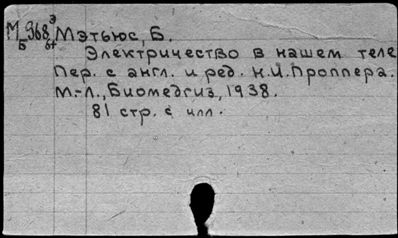 М-968 Э Мэтьюс, Б.
Б 61
Электричество в нашем теле
Пер. с англ. и ред. Н.И. Проппера.
М.-Л., Биомедгиз, 1938.
81 стр. с илл.